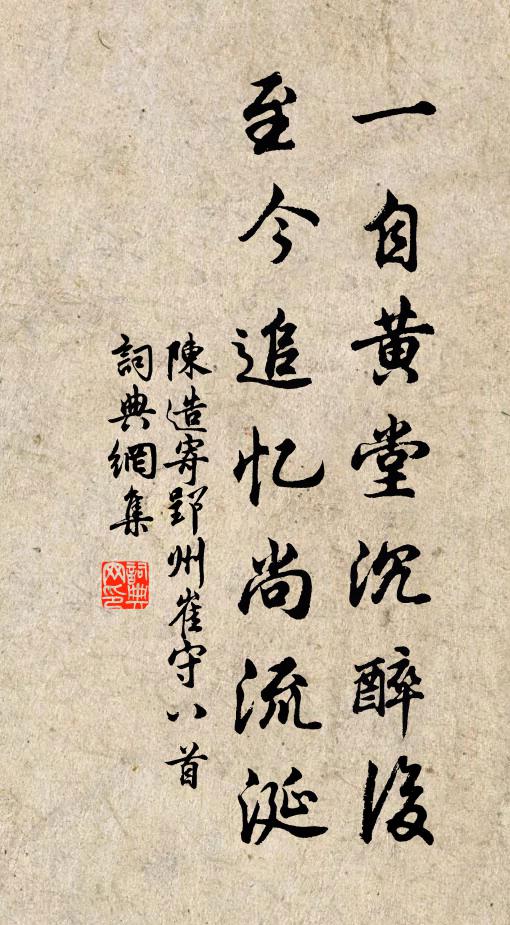 一自黄堂沉醉後
至今追忆尚流涎
陳造寄郢州崔守八首
詞典網集
詞典网印